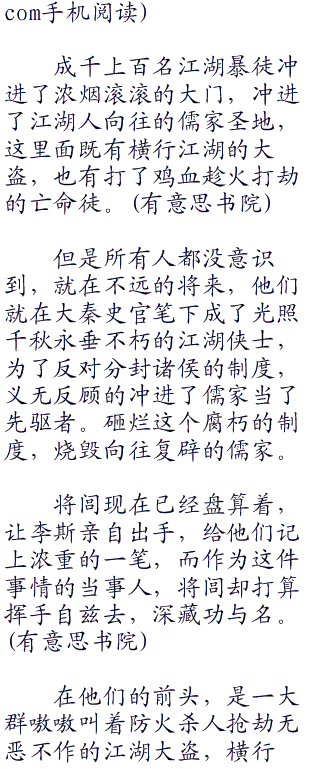 com手机阅读)
成千上百名江湖暴徒冲
进了浓烟滚滚的大门，冲进
了江湖人向往的儒家圣地，
这里面既有横行江湖的大
盗，也有打了鸡血趁火打劫
的亡命徒。(有意思书院)
但是所有人都没意识
到，就在不远的将来，他们
就在大秦史官笔下成了光照
千秋永垂不朽的江湖侠士，
为了反对分封诸侯的制度，
义无反顾的冲进了儒家当了
先驱者。砸烂这个腐朽的制
度，烧毁向往复辟的儒家。
将闾现在已经盘算着，
让李斯亲自出手，给他们记
上浓重的一笔，而作为这件
事情的当事人，将闾却打算
挥手自兹去，深藏功与名。
(有意思书院)
在他们的前头，是一大
群嗷嗷叫着防火杀人抢劫无
恶不作的江湖大盗，横行